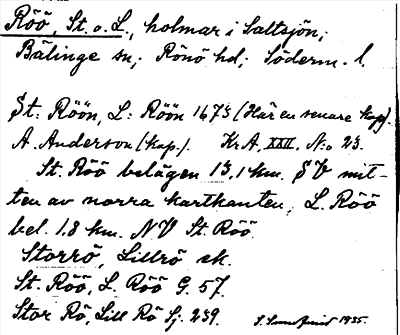 Röö, St. o. L., holmar i Saltsjön,
Bälinge sn; Rönö hd; Söderm. l.
St: Röön, L: Röön 1673 (Här en senare kop).
A. Anderson (kop.). Kr.A. XXII. N:o 23.
St. Röö belägen 13,1 km. SV mit-
ten av norra kartkanten, L. Röö
bel. 1.8 km. NV St. Röö.
Storrö, Lillrö ek.
St. Röö, L. Röö G. 57.
Stor Rö, Lill Rö Sj. 239.
1935.